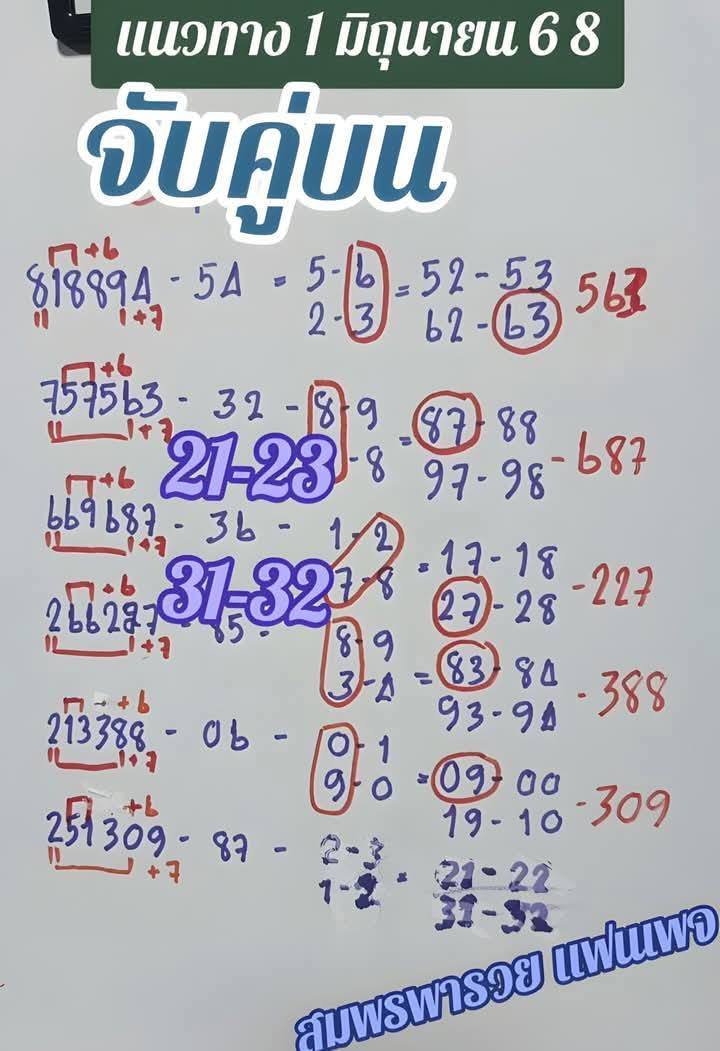 แนวทาง 1 มิถุนายน 6 8
จับคู่บน
+6
818894 - 54 = 5-6 = 52 - 53 563
2-3 62 - 63
+7
+6
757563 - 32 - 8-9 = 87-88 - 687
-8 97-98
+7
21-23
+6
669687 - 36 - 1-2 = 17-18 - 227
7-8 27-28
+7
31-32
+6
266227 - 85 - 8-9 = 83-84 - 388
3-4 93-94
+7
+6
213388 - 06 - 0-1 = 09-00 - 309
9-0 19-10
+7
+6
251309 - 87 - 2-3 = 21-22
1-2 31-32
+7
สมพรพารวย แฟนเพจ